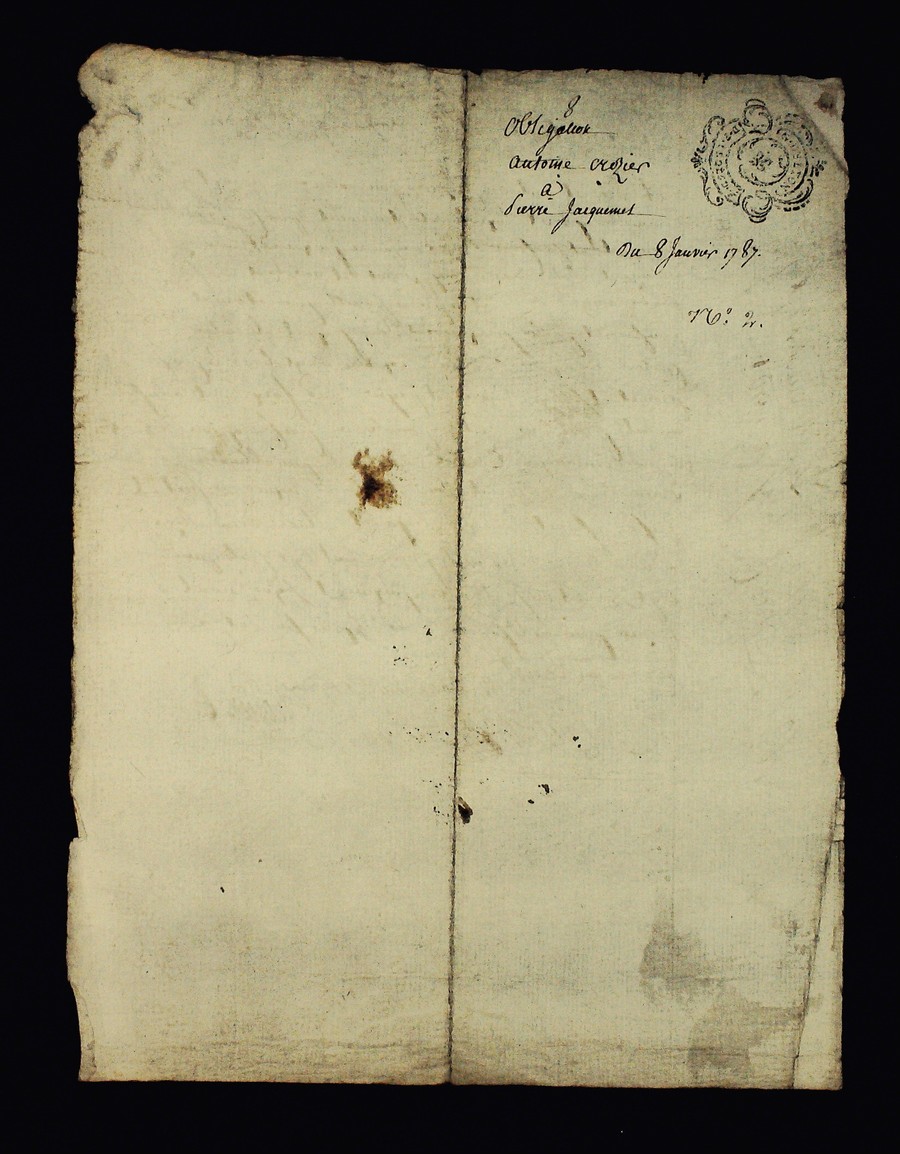 8
Obligation
antoine crozier
a
Pierre Jacquemet
Du 8 Janvier 1787.
No. 2.